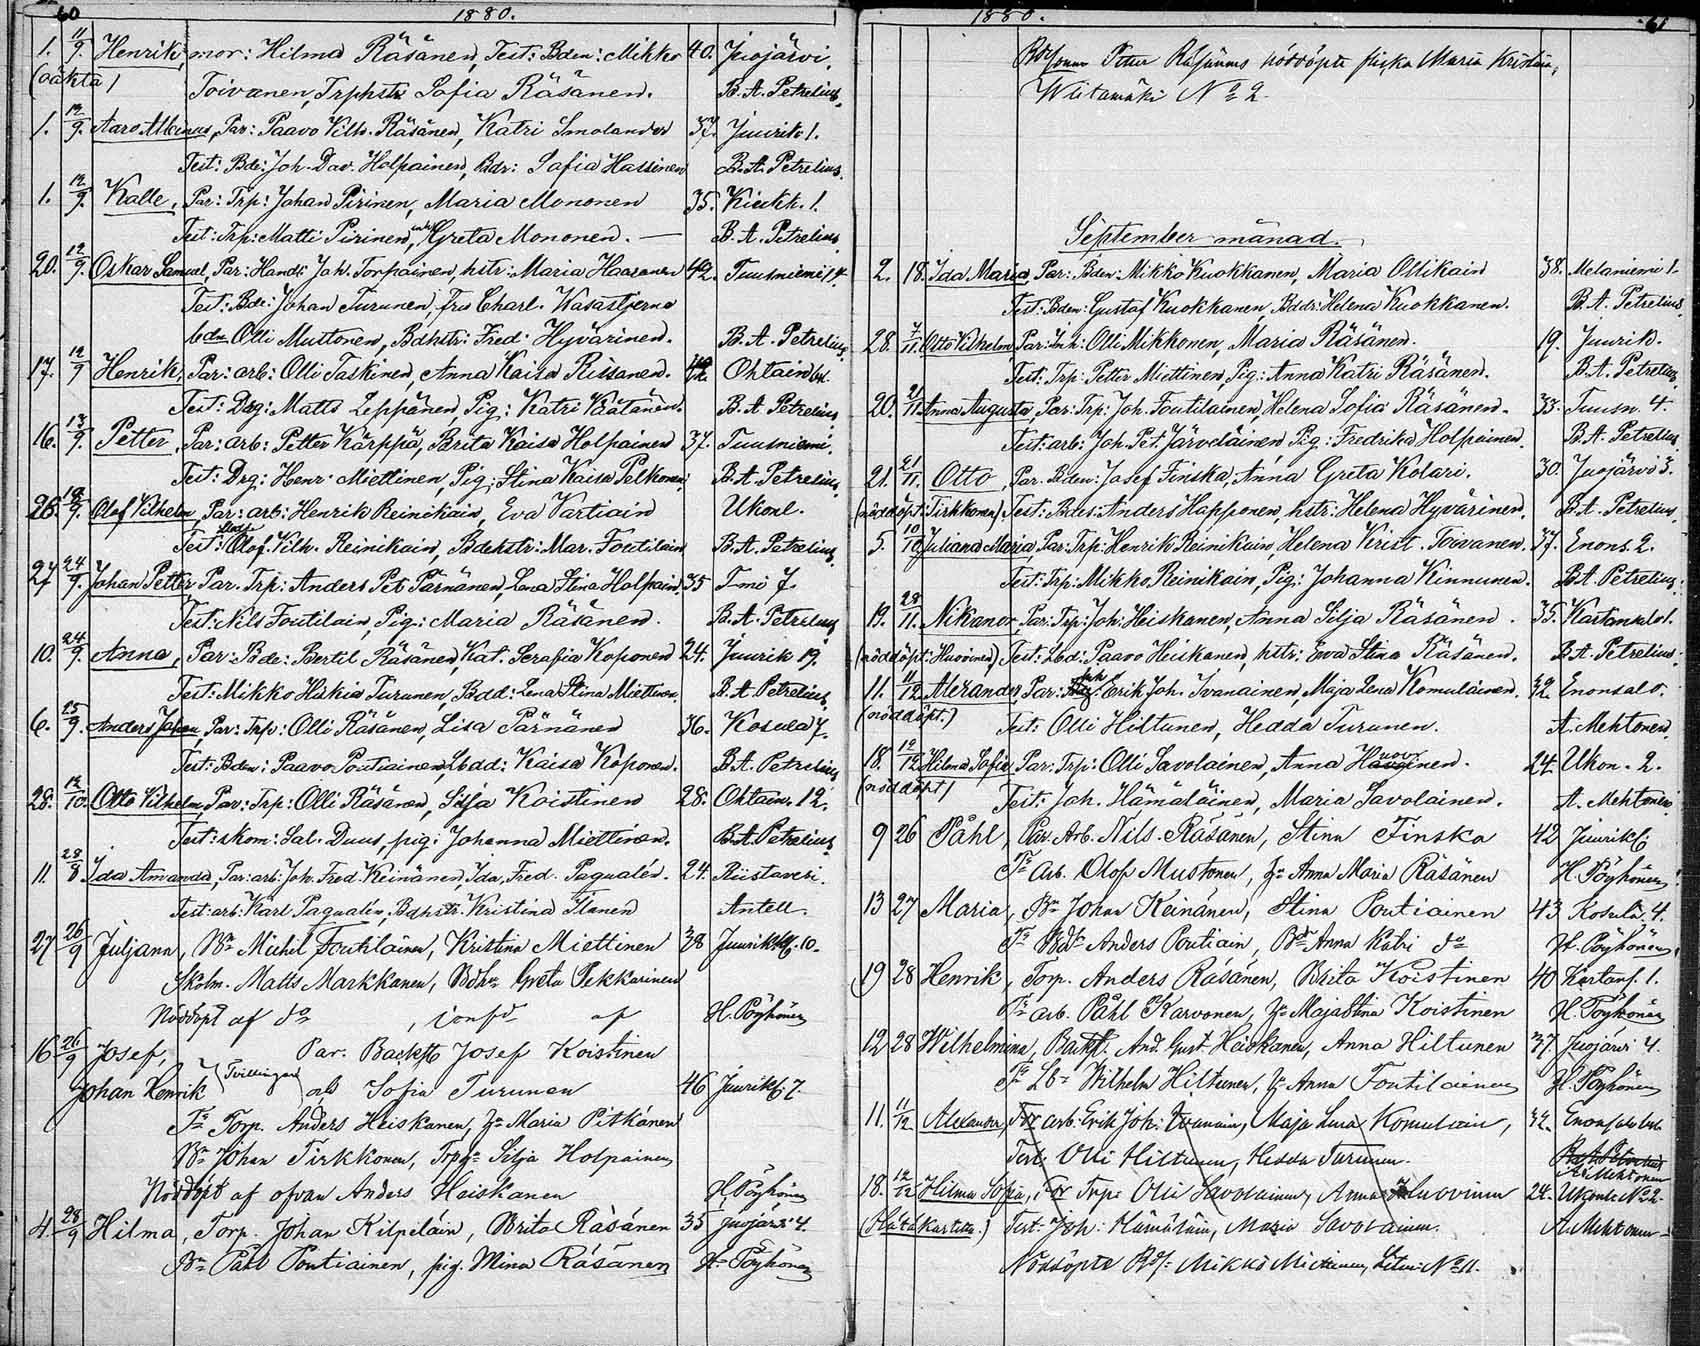 60 1880.
1. 11/9. Henrik, mor: Hilma Räsänen, Test: Bden: Mikko 40. Juojärvi.
(oäkta) Toivanen, Trphstr Sofia Räsänen. B. A. Petrelius.
1. 12/9. Aaro Albinus, Par: Paavo Vilh. Räsänen, Katri Smolander 37. Juurik 1.
Test: Bde: Joh. Dav. Holpainen, Bdr: Sofia Hassinen B. A. Petrelius.
1. 12/9. Kalle, Par: Trp: Johan Pirinen, Maria Mononen 35. Kiukk. 1.
Test: Trp: Matti Pirinen, Greta Mononen. — B. A. Petrelius.
20. 12/9. Oskar Samuel, Par: Handl: Joh. Torpainen, hstr: Maria Haasonen 42. Tuusniemi 14.
Test: Bde: Johan Turunen, fru Charl. Wasastjerna
bdn Olli Mustonen, Bdhstr: Fred: Hyvärinen. B. A. Petrelius.
17. 12/9 Henrik, Par: arb: Olli Taskinen, Anna Kaisa Rissanen. 42. Ohtain
Test: Drg: Matts Leppänen, Pig: Katri Väätänen. B. A. Petrelius.
16. 13/9. Petter, Par: arb: Petter Kärppä, Brita Kaisa Holpainen 37. Tuusniemi.
Test: Drg: Henr. Miettinen, Pig: Stina Kaisa Pelkonen, B. A. Petrelius,
26. 18/9. Olof Vilhelm, Par: arb: Henrik Reinikain, Eva Vartiain Ukonl.
Test: Olof Vilh. Reinikain, Bdehstr: Mar. Foutilain B. A. Petrelius,
27 24/9. Johan Petter, Par: Trp: Anders Pet Pärnänen, Lena Stina Holpain. 35 Tmi 7.
Test: Nils Foutilain, Pig: Maria Räsänen. B. A. Petrelius,
10. 24/9. Anna, Par: Bde: Bertil Räsänen, Kat. Serafia Koponen 24. Juurik 19.
Test: Mikko Turunen, Bdd: Lena Stina Miettinen. B. A. Petrelius,
6. 25/9. Anders Johan, Par: Trp: Olli Räsänen, Lisa Pärnänen 36. Kosula 7.
Test: Bden: Paavo Poutiainen, Lbdd: Kaisa Koponen. B. A. Petrelius
28. 12/10. Otto Vilhelm, Par: Trp: Olli Räsänen, Silja Koistinen 28. Ohtain. 12.
Test: skom: Sal. Duus, pig: Johanna Miettinen. B. A. Petrelius,
11. 28/8 Ida Amanda, Par: arb: Joh. Fred. Keinänen, Ida Fred. Pagualén. 24. Riistavesi.
Test: arb: Karl Pagualén, Bdhstr: Kristina Itanen Antell.
27 26/9 Juljana, Bn Michel Foutilainen, Kristina Miettinen 38 Juurikk. 10.
Skolm. Matts Markkanen, Bdhr Greta Pekkarinen
Nöddöpt af do, confd af H. Pöyhönen
16 26/9 Josef, Par. Backst Josef Koistinen
Johan Henrik Tvillingar Sofia Turunen 46 Juurikk 7.
Fr Torp. Anders Heiskanen, Maria Pitkänen
Bn Johan Tirkkonen, Silja Holpainen
Nöddöpt af ofvan Anders Heiskanen H. Pöyhönen
4. 28/9 Hilma, Torp. Johan Kilpeläin, Brita Räsänen 35 Juojärvi 4.
Bn Påhl Poutiainen, pig. Mina Räsänen H. Pöyhönen
1880. 61
Petter Räsänens nöddöpte flicka Maria Kristina,
Wiitamäki No 2.
September månad.
2. 18. Ida Maria, Par: Bden: Mikko Kuokkanen, Maria Ollikain 38. Melaniemi 1.
Test: Bden: Gustaf Kuokkanen, Bddr: Helena Kuokkanen. B. A. Petrelius,
28. 7/11. Otto Vilhelm, Par: Inh: Olli Mikkonen, Maria Räsänen. 19. Juurik.
Test: Trp: Petter Miettinen, Pig: Anna Katri Räsänen. B. A. Petrelius,
20. 21/11. Anna Augusta, Par: Trp: Joh. Foutilainen, Helena Sofia Räsänen. 33. Tuusn. 4.
Test: arb: Joh. Pet. Järveläinen, Pig: Fredrika Holpainen. B. A. Petrelius
21. 21/11. Otto, Par. Bden: Josef Finska, Anna Greta Kolari. 30. Juojärvi 3.
(nöddöpt: Tirkkonen) Test: Bdes: Anders Happonen, hstr: Helena Hyvärinen. B. A. Petrelius,
5. 10/10. Juliana Maria, Par: Trp: Henrik Reinikain, Helena Krist. Toivanen. 37. Enons. 2.
Test: Trp: Mikko Reinikain, Pig: Johanna Kinnunen. B. A. Petrelius,
19. 28/11. Nikanor, Par: Trp: Joh: Heiskanen, Anna Silja Räsänen. 35. Kartansalo 1.
(nöddöpt: Huvoinen) Test: Lbd: Paavo Heiskanen, hstr: Eva Stina Räsänen. B. A. Petrelius,
11. 11/12 Alexander, Par: Inh Erik Joh. Ivanainen, Maja Lena Komulainen. 32. Enonsalo.
(nöddöpt.) Test: Olli Hiltunen, Hedda Turunen. A. Mehtonen
18. 12/12 Hilma Sofia, Par: Trp: Olli Savolainen, Anna Huovinen. 24. Ukon. 2.
(nöddöpt) Test: Joh. Hämäläinen, Maria Savolainen. A. Mehtonen
9 26 Påhl, Par. Arb. Nils Räsänen, Stina Finska 42 Juurikk
Fr Arb. Olof Mustonen, Anna Maria Räsänen H. Pöyhönen
13 27 Maria, Bn Johan Keinänen, Stina Poutiainen 43 Kosula 4.
Fr Anders Poutiain, Anna Katri do H. Pöyhönen
19 28 Henrik, Torp. Anders Räsänen, Brita Koistinen 40 Kartans. 1.
Fr arb. Påhl Karvonen, Maja Stina Koistinen H. Pöyhönen
12 28 Wilhelmina, Backst. And. Gust. Heiskanen, Anna Hiltunen 37. Juojärvi 4.
Fr Wilhelm Hiltunen, Anna Foutilainen H. Pöyhönen
11. 11/12 Alexander, arb: Erik Joh: Ivanain, Maja Lena Komulain, 32. Enonsalo
Test: Olli Hiltunen, Hedda Turunen. A. Mehtonen
18. 12/12 Hilma Sofia, Trp: Olli Savolainen, Anna Huovinen 24. Ukonl. No 2.
Test: Joh: Hämäläin, Maria Savolainen. A. Mehtonen
Nöddöpte Mikko Miettinen, No 11.